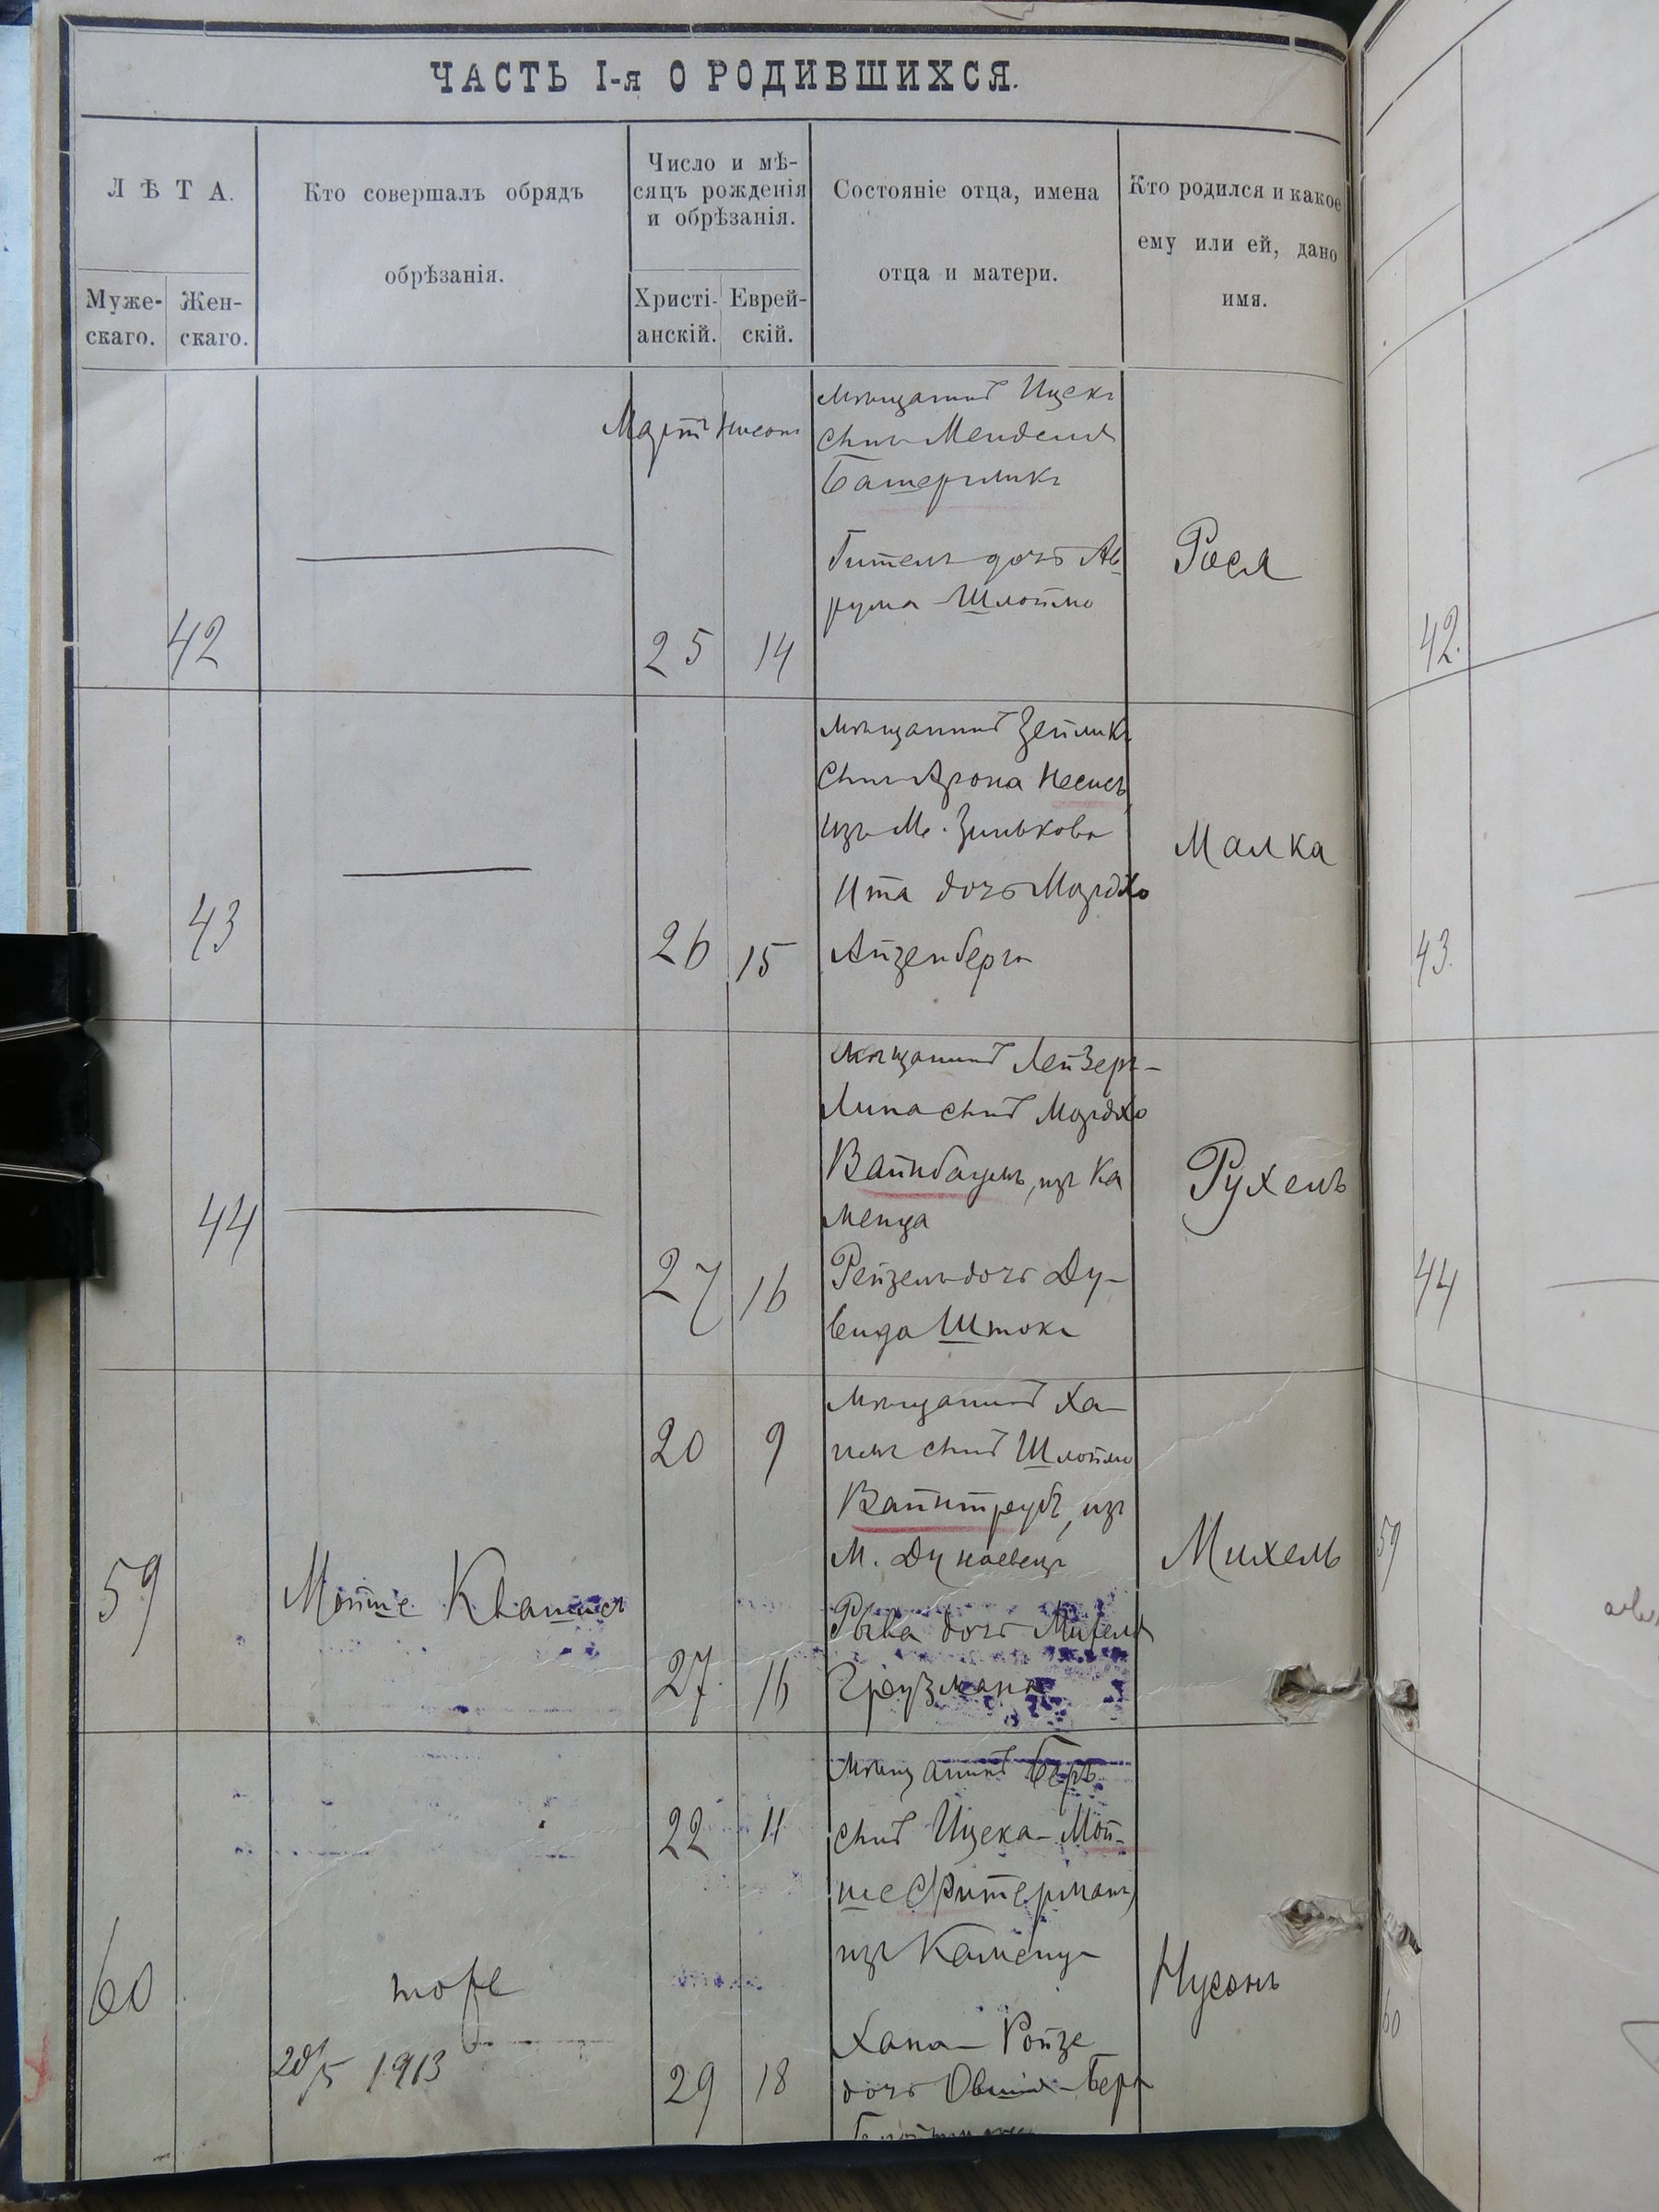 ЧАСТЬ I-я О РОДИВШИХСЯ.
ЛѢТА.
Муже-
скаго.
Жен-
скаго.
Кто совершалъ обрядъ
обрѣзанія.
Число и мѣ-
сяцъ рожденія
и обрѣзанія.
Христі-
анскій.
Еврей-
скій.
Состояніе отца, имена
отца и матери.
Кто родился и какое
ему или ей, дано
имя.
42
Мартъ Нисонъ
25 14
мѣщанинъ Ицекъ
сынъ Менделя
Гитель дочь Ав
рума Шлоймо
Рося
42.
43
26 15
мѣщанинъ Зейликъ
сынъ Арона Несисъ
изъ м. Зинькова
Ита дочь Мордко
Айзенбергъ
Малка
43.
44
27 16
мѣщанинъ Лейзеръ-
Липа сынъ Мордко
Вайнбаумъ, изъ Ка
менца
Рейзель дочь Ду-
вида Штокъ
Рухель
44
59
Мойше Квашисъ
20 9
27 16
мѣщанинъ Ха-
имъ сынъ Шлоймо
Вайнтраубъ, изъ
м. Дунаевецъ
Рыва дочь Михеля
Граузмана
Михель
59
60
тоже
20/5 1913
22 11
29 18
мѣщанинъ Беръ
сынъ Ицека-Мой-
ше Фитерманъ,
изъ Каменца
Хана-Ройзе
дочь Овшия-Беръ
Нусонъ
60